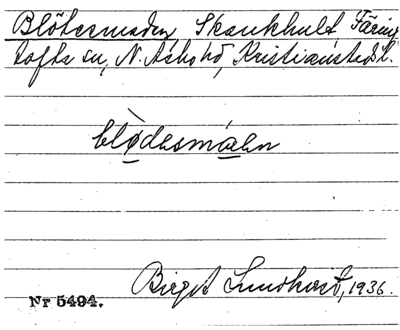 Blötesmaden, Skankhult Färing
tofta sn, N. Åsbo hd, Kristianstads l.
blödesmaen
Birgit Lundkvist, 1936.
Nr 5494.